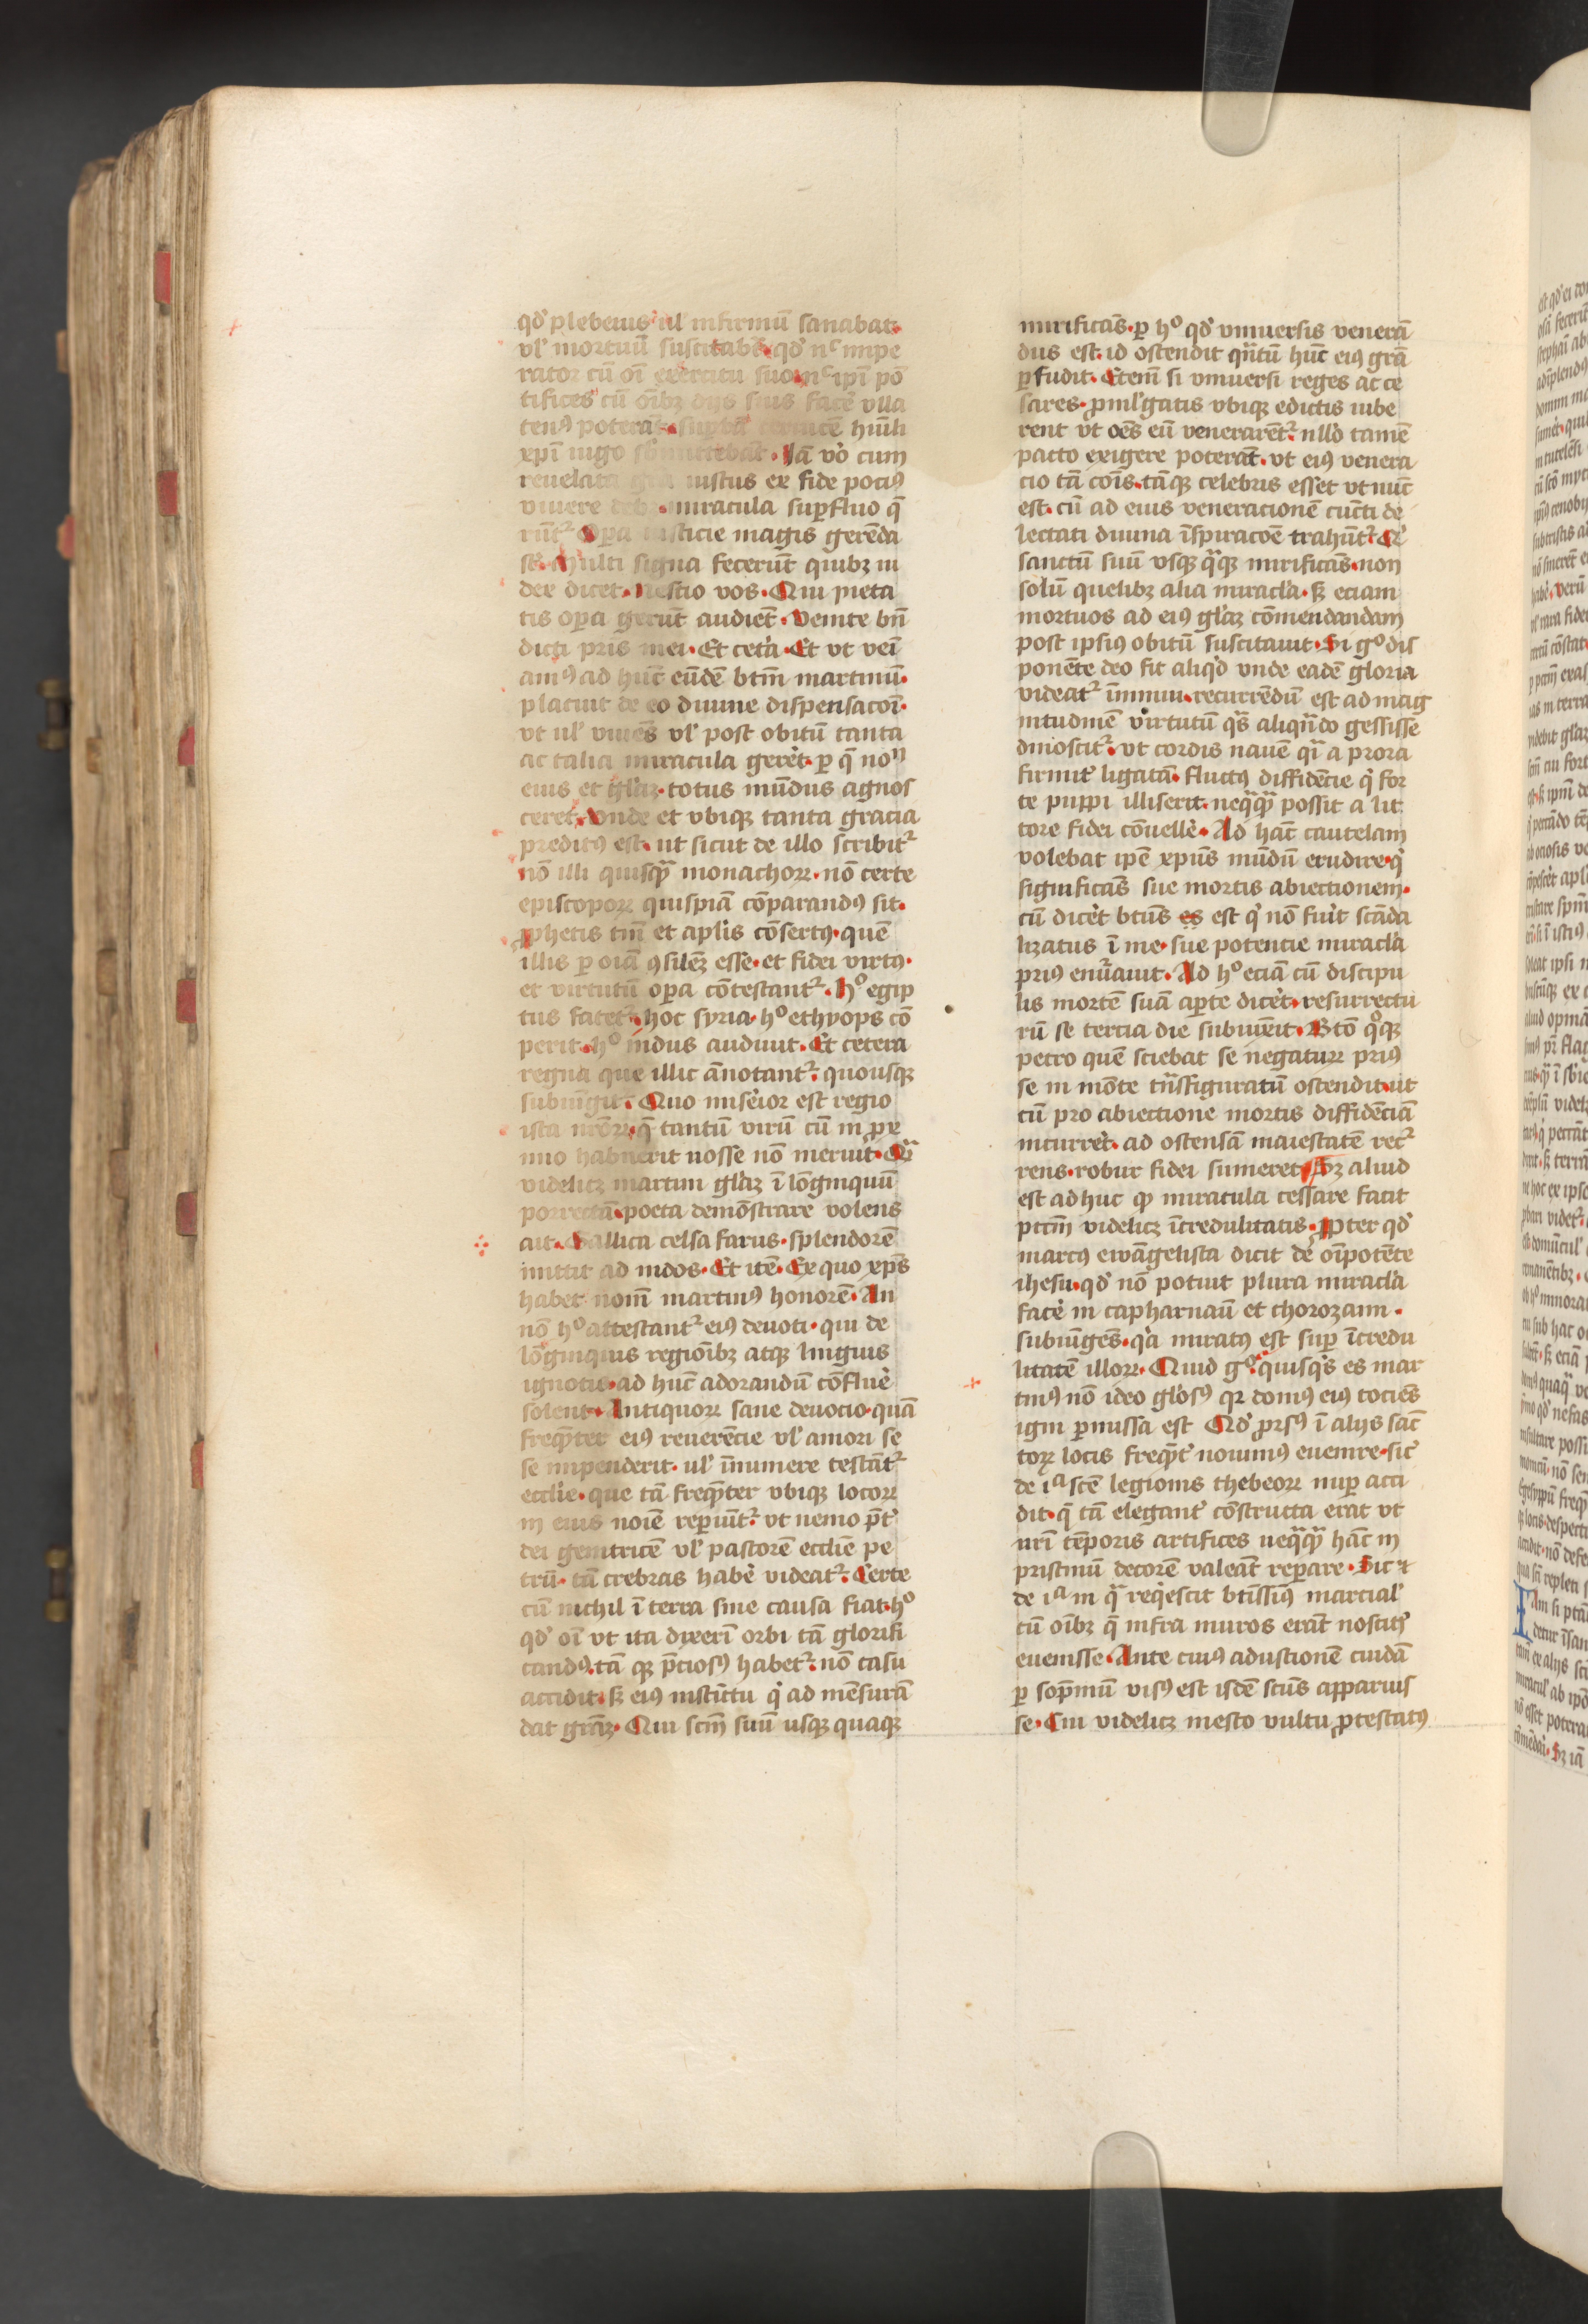 qđ plebeius ul' infirmū sanabat·
vl' mortuū suscitab̄t· qđ nͨ impe
rator cū oī exercitu suo· nͨ ip̄i pō
tifices cū oībꝫ dijs suis facē vlla
tenꝰ poterāt· supbā ceruicē hūili
xp̄i iugo submittebāt· Jā vo cum
reuelata gr̄a iustus ex fide pociꝰ
viuere debꝫ· miracula suꝑfluo q̄
rūt᷑ Oꝑa iusticie magis gerēda
st̄· Multi signa fecerūt quibꝫ iu
dex dicet· Nescio vos· Qui pieta
tis oꝑa gerūt audiēt· Venite bn̄
dicti pr̄is mei· Et cetā· Et vt veī
amꝰ ad hūc eūdē btm̄ martinū·
placuit de eo diuine dispensacoī·
vt ul' viuēs vl' post obitū tanta
ac talia miracula gerēt· ꝑ q̄ non
eius et gl'aꝫ totus mūdus agnos
ceret· Vnde et vbiqꝫ tanta gracia
preditꝰ est· ut sicut de illo scribit᷑
nō illi quisqᷓ monachoꝝ· nō certe
episcopoꝝ quispiā cōparandꝰ sit·
ꝓphetis tn̄ et apl'is cōsertꝰ· quē
illis ꝑ oīa ꝯsilēꝫ esse· et fidei virtꝰ·
et virtutū oꝑa cōtestant᷑· Hº egip
tus fatet᷑· hoc syria· hº ethyops cō
perit· hº indus audiuit· Et cetera
regna que illic ānotant᷑· quousqꝫ
subiūgit· Quo miserior est regio
ista nr̄oꝝ· q̄ tantū virū cū in ꝓx
imo habuerit nosse nō meruit· Qᷓ
videlicꝫ martini gl'aꝫ ī lōginquū
porrectā· poeta demōstrare volens
ait· Gallica celsa farus· splendorē
mittit ad indos· Et itē· Ex quo xp̄s
habet nom̄ martinꝰ honorē· An
nō hº attestant᷑ eiꝰ deuoti· qui de
lōginquis regiōibꝫ atqꝫ linguis
ignotis· ad hūc adorandū cōfluē
solent· Antiquoꝝ sane deuocio· quā
freq̄nter eiꝰ reuerēcie vl' amori se
se impenderit· ul' īnumere testāt᷑
eccl'ie· que tā freq̄nter vbiqꝫ locoꝝ
in eius noīe reperiūt᷑· vt nemo p̄t'
dei genitricē vl' pastorē eccl'ie pe
trū· tā crebras habē videat᷑· Certe
cū nichil ī terra sine causa fiat· hº
qđ oī vt ita dixerī orbi tā glorifi
candꝰ· tā qꝫ p̄ciosꝰ habet᷑· nō casu
accidit· sꝫ eiꝰ instīctu q' ad mēsurā
dat gr̄aꝫ· Qui scm̄ suū usqꝫ quaqꝫ
mirificās· ꝑ hº qđ vniuersis venerā
dus est· id ostendit qn̄tū hūc eiꝰ grā
ꝑfudit· Etenī si vniuersi reges ac ce
sares· ꝓml'gatis vbiqꝫ edictis iube
rent vt oēs eū venerarēt᷑· nll'o tamē
pacto exigere poterāt· vt eiꝰ venera
cio tā cois· tāqꝫ celebris esset vt nūc
est· cū ad eius veneracionē cūcti de
lectati diuina īspiracōe trahūt᷑·
sanctū suū vsqꝫ qᷓqꝫ mirificās· non
solū quelibꝫ alia miracl'a· sꝫ eciam
mortuos ad eiꝰ gl'aꝫ cōmendandam
post ipsiꝰ obitū suscitauit· Si gº dis
ponēte deo fit aliq'd vnde eadē gloria
videat᷑ īminui· recurrēdū est ad mag
nitudinē virtutū q'̄s aliqn̄do gessisse
dinoscit᷑· vt cordis nauē q'ī a prora
firmit' ligatā· fluctꝰ diffidēcie q' for
te puppi illiserit· neqᷓqᷓ possit a lit
tore fidei cōuellē· Ad hāc cautelam
volebat ipē xpūs mūdū erudire· q'
significās sue mortis abiectionem·
cū dicēt btūs es est q' nō fuit scāda
lizatus ī me· sue potencie miracl'a
priꝰ enūauit· Ad hº eciā cū discipu
lis mortē suā aꝑte dicēt· resurrectu
rū se tercia die subiūxit· Btō qºqꝫ
petro quē sciebat se negaturꝝ priꝰ
se in mōte trn̄sfiguratū ostendit· ut
cū pro abiectione mortis diffidēciā
incurrēt· ad ostensā maiestatē rec᷑
rens· robur fidei sumeret· Sꝫ aliud
est adhuc qꝫ miracula cessare facit
pctm̄ videlicꝫ īcredulitatis· ꝓpter qđ
marcꝰ ewāgelista dicit de oīpotēte
ihesu· qđ nō potuit plura miracl'a
facē in capharnaū et chorozaim·
subiūgēs· q'a miratꝰ est suꝑ īcredu
litatē illoꝝ· Quid gº quisq's es mar
tinꝰ nō ideo gl'osꝰ qꝛ domꝰ eiꝰ tociēs
igni ꝑmissa est Qđ ꝓrsꝰ ī alijs sāc
toꝝ locis freq̄nt' nouimꝰ euenire· sic'
de iª scē legionis thebeoꝝ nuꝑ acci
dit· q̄ tā elegant' cōstructa erat vt
nrī tēporis artifices neqᷓqᷓ hāc in
pristinū decorē valeāt reꝑare· Sic ⁊
de iª in qᷓ req'escit btīssimꝰ marcial'
cū oībꝫ q̄ infra muros erāt noscit᷑
euenisse· Ante cuiꝰ adustionē cuidā
ꝑ sop̄mū visꝰ est isdē scūs apparuis
se· Cui videlicꝫ mesto vultu ꝓtestatꝰ